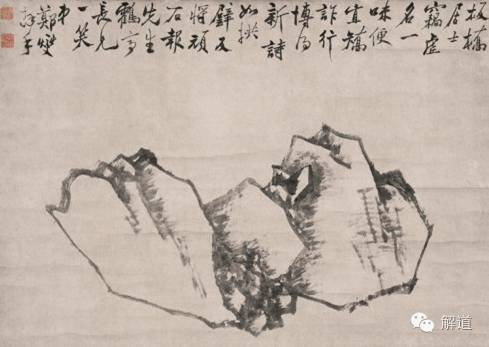 板橋
居士
竊虛
名一
味便
宜矯
詐行
博得
新詩
如拱
璧又
將頑
石報
先生
鶴亭
長兄
一笑
弟
鄭燮
解道